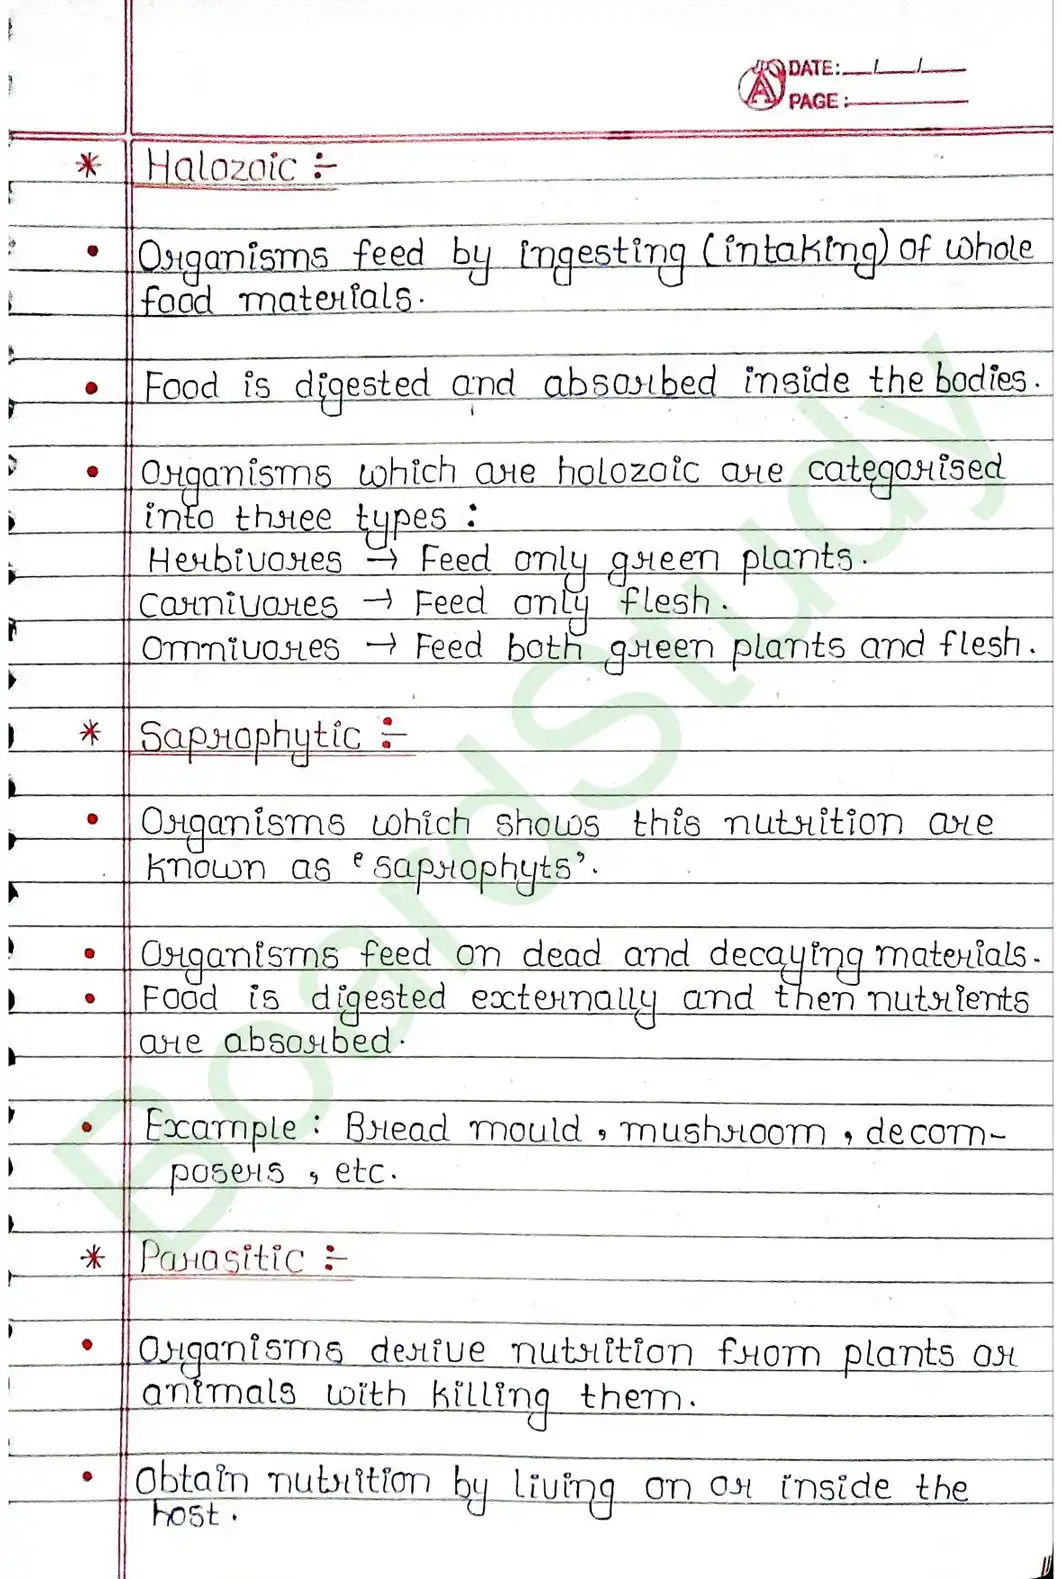 DATE: / /
PAGE:
* Halozoic :-
• Organisms feed by ingesting (intaking) of whole
food materials.
• Food is digested and absorbed inside the bodies.
• Organisms which are holozoic are categorised
into three types :
Herbivores → Feed only green plants.
Carnivores → Feed only flesh.
Omnivores → Feed both green plants and flesh.
* Saprophytic :-
• Organisms which shows this nutrition are
known as 'saprophyts'.
• Organisms feed on dead and decaying materials.
• Food is digested externally and then nutrients
are absorbed.
• Example : Bread mould, mushroom, decom-
posers, etc.
* Parasitic :-
• Organisms derive nutrition from plants or
animals with killing them.
• Obtain nutrition by living on or inside the
host.
BoardStudy